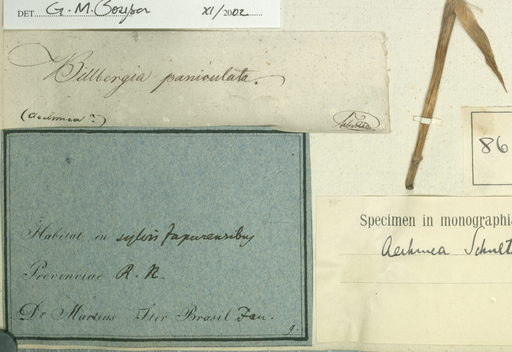 DET. G. M. Sousa XI/2002
Billbergia paniculata.
(Aechmea?)
86
Habitat in sylvis Japurensibus
Provinciae R. N.
Dr Martius Iter Brasil Jan.
Specimen in monographia
Aechmea Schult